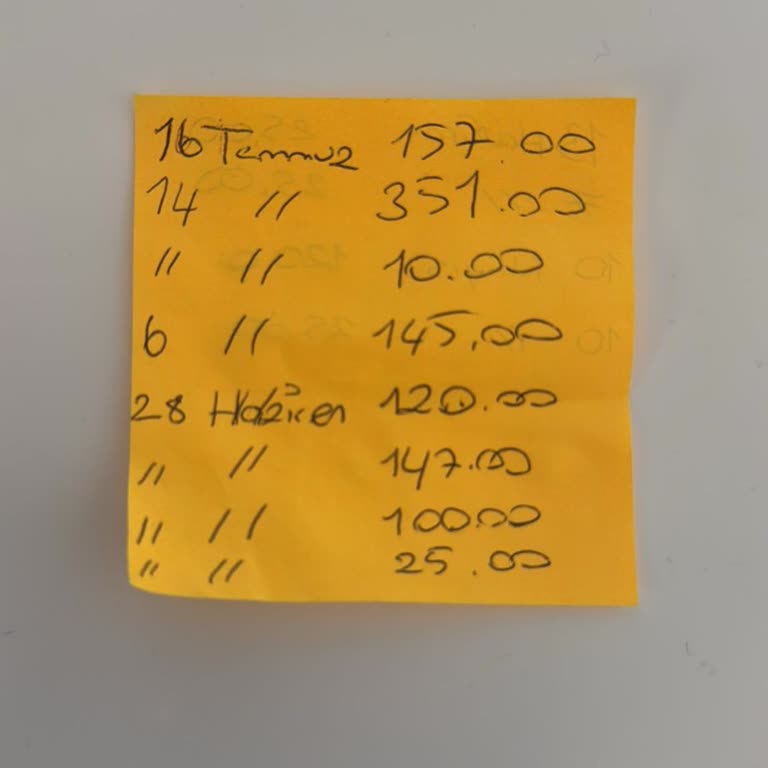 16 Temmuz 157.00
14 " 351.00
" " 10.00
6 " 145.00
28 Haziran 120.00
" " 147.00
" " 100.00
" " 25.00